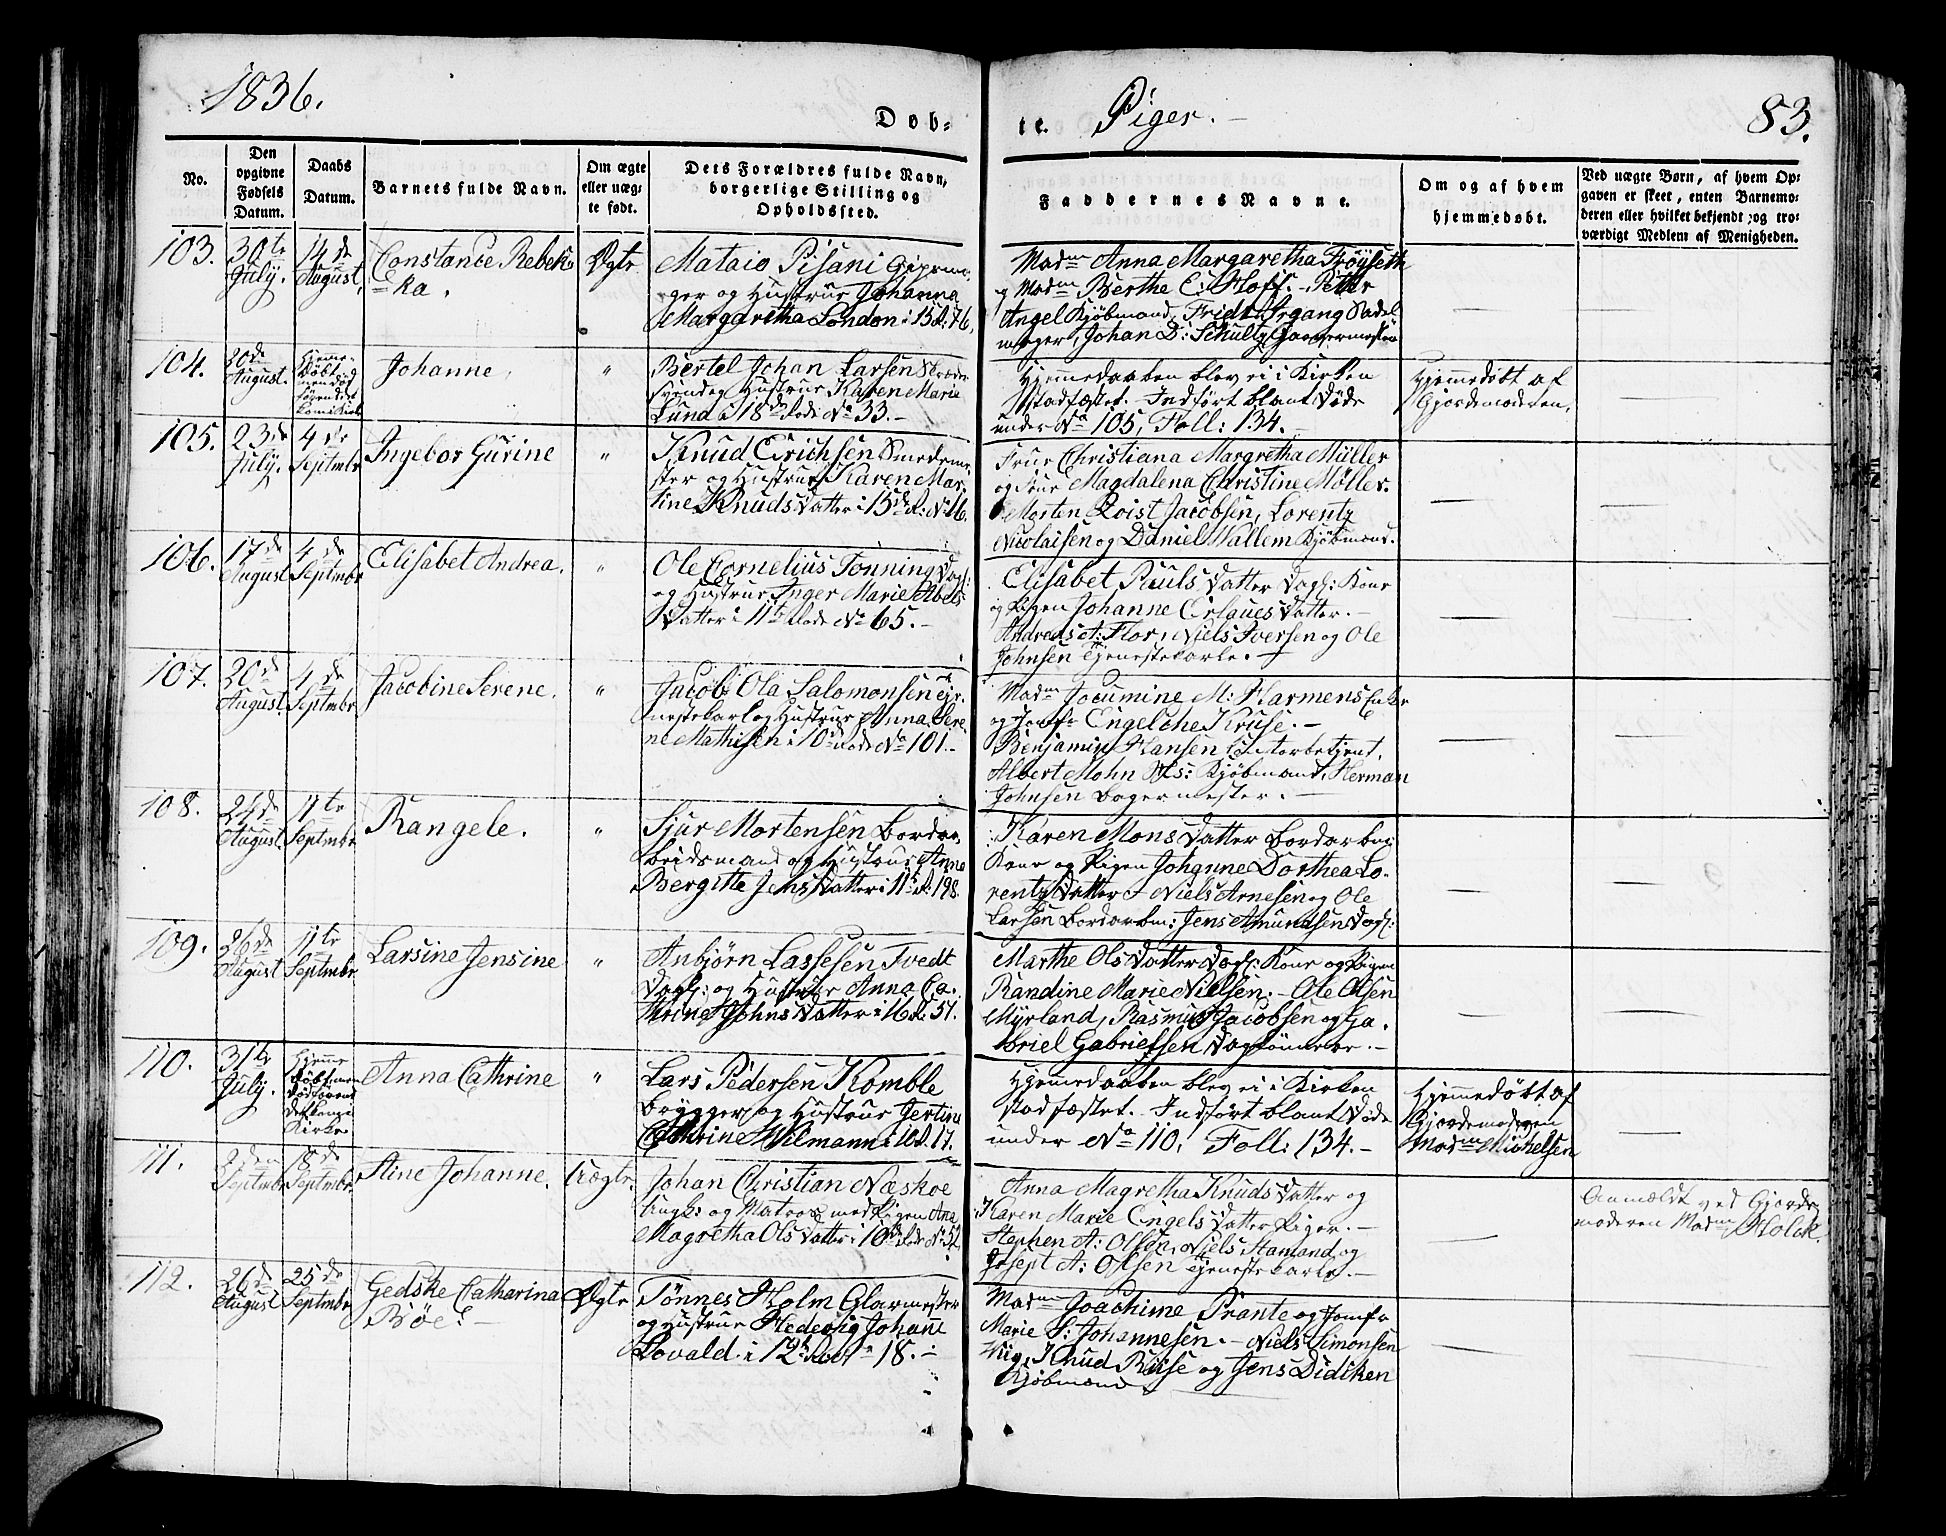 1836.
Døb-
te. Piger. -
83.
No.
Den
opgivne
Fødsels
Datum.
Daabs
Datum.
Barnets fulde Navn.
Om ægte
eller uæg-
te født.
Dets Forældres fulde Navn,
borgerlige Stilling og
Opholdssted.
Faddernes Navne.
Om og af hvem
hjemmedøbt.
Ved uægte Børn, af hvem Op-
gaven er skeet, enten Barnemo-
deren eller hvilket bekjendt og tro-
værdigt Medlem af Menigheden.
103.
30te
July.
14de
August.
Constance Rebek
ka.
Ægte
Mataio Pisani Gipsma-
ger og Hustrue Johanna
Margaretha London i 15d: 76.
Madm Anna Margaretha Frøyseth
og Madm Berthe C: Hoff. - Petter
Angel Kjøbmand, Fridr Irgang Sadel
mager, Johan D: Schultz Garvermester
104.
20de
August.
Hjemme-
døbt og
Johanne.
"
Bertel Johan Larsen
svend og Hustrue Karen Marie
Lund i 18de Rode No 33. -
Hjemmedaaben blev ei i Kirken
stadfæstet. Indført blant Døde
under No 105, Foll: 134.
Hjemedøbt af
Gjordemoderen.
105.
23de
July.
4de
Septmbr
Ingebor Gurine
"
Knud Erichsen Smedeme-
ster og Hustrue Karen Mar-
tine Knuds Datter i 15de R: No 16.
Frue Christiana Margretha Müller
og Frue Magdalena Christine Møller.
Morten Roist Jacobsen, Lorentz
Nicolaisen og Daniel Wallem Kjøbmænd.
106.
17de
August
4de
Septmbr
Elisabet Andrea.
"
Ole Cornelius Tonning Dagl:
og Hustrue Inger Marie Abels
Datter i 11te Rode No 65. -
Elisabet Pouls Datter Dagl: Kone
og Pigen Johanne Erlaues Datter. -
Andreas A: Flor, Niels Iversen og Ole
Johnsen Tjenestekarle. -
107.
20de
August.
4de
Septmbr
Jacobine Serene.
"
Jacob Ola Salomonsen Tje-
nestekarl og Hustrue Anna Sere
ne Mathisen i 10de Rode No 101. -
Madm Jocumine M: Harmens Enke
og Jomfr Engelche Kruse. -
Benjamin Hansen Contorbetjent,
Albert Mohn Kjøbmand, Herman
Johnsen Bagermester. -
108.
24de
August.
11te
Septmbr
Rangele.
"
Sjur Mortensen Bordar-
beidsmand og Hustrue Anne
Bergitte Jens Datter i 11te R: 198.
Karen Mons Datter Bordarbm:
Kone og Pigen Johanne Dorthea Lo-
rentz Datter - Niels Arnesen og Ole
Larsen Bordarbm: Jens Amundsen Dagl:
109.
26de
August
11te
Septmbr
Larsine Jensine
"
Anbjørn Lassesen Tvedt
Dagl: og Hustrue Anna Ca-
thrine Johns Datter i 16 R: 51.
Marthe Ols Datter Dagl: Kone og Pigen
Randine Marie Nielsen. - Ole Olsen
Myrland, Rasmus Jacobsen og Ga-
briel Gabrielsen Daglønnere. -
110.
31te
July.
Hjemme
døbt men
Kirke
Anna Cathrine
"
Lars Pedersen Komble
Brygger og Hustrue Jertine
Cathrine Wilmann i 10 R. 17.
Hjemmedaaben blev ei i Kirken
stadfæstet. Indført blant Døde
under No 110, Foll: 134. -
Hjemmedøbt af
Gjordemoderen
Madm Michelsen
111.
2den
Septmbr
18de
Septmbr.
Stine Johanne.
Uægte.
Johan Christian Næskoe
Ungk: og Matros med Pigen Ana
Magretha Ols Datter i 16de Rode No 52.
Anna Magretha Knuds Datter og
Karen Marie Engels Datter Piger. -
Stephen A: Olsen, Niels Stamand og
Josept A: Olsen Tjenestekarle. -
Anmældt ved Gjorde-
moderen Madm Holck.
112.
26de
August
25de
Septmbr
Gedske Catharina
Bøe. -
Ægte
Tønnes Holm Glarmester
og Hustrue Hedevig Johane
Lovald. i 12te Rode No 18. -
Madm Joachime Prante og Jomfr
Marie S: Johannesen. - Niels Simonsen
Wiig, Knud Riise og Jens Didiken
Kjøbmænd